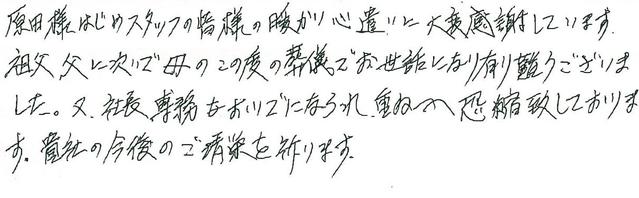 原田様はじめスタッフの皆様の暖かい心遣いに大変感謝しています。
祖父 父に次いで母のこの度の葬儀でお世話になり有り難うございま
した。又、社長 専務もおいでになられ、重ね々恐縮致しておりま
す。貴社の今後のご清栄を祈ります。